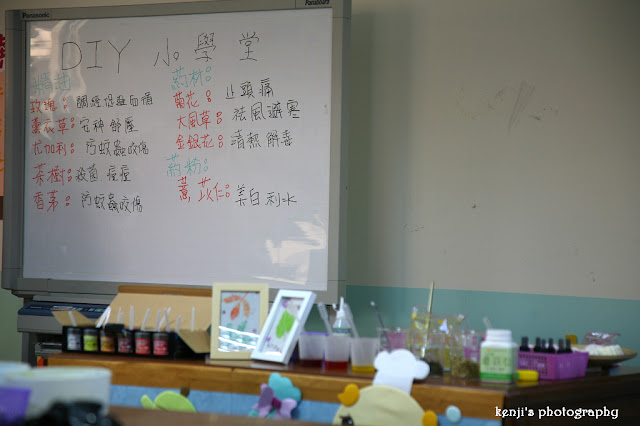 Panasonic
Panasonic
DIY 小學堂
精油
玫瑰：調經促進血循
薰衣草：安神舒壓
尤加利：防蚊蟲咬傷
茶樹：殺菌.痘痘
香茅：防蚊蟲咬傷
藥材：
菊花：止頭痛
大風草：祛風避寒
金銀花：清熱解毒
藥粉：
薏苡仁：美白利水
kenji's photography